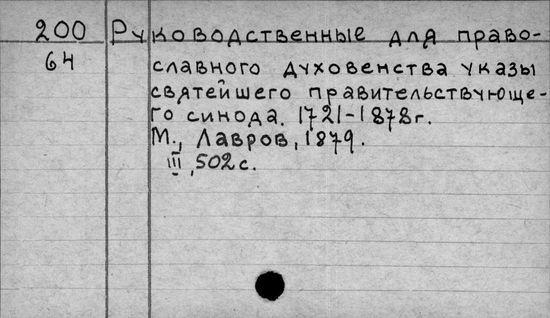 200 Руководственные для право-
64 славного духовенства указы
святейшего правительствующе-
го синода. 1721-1878г.
М., Лавров, 1879.
III, 502 с.